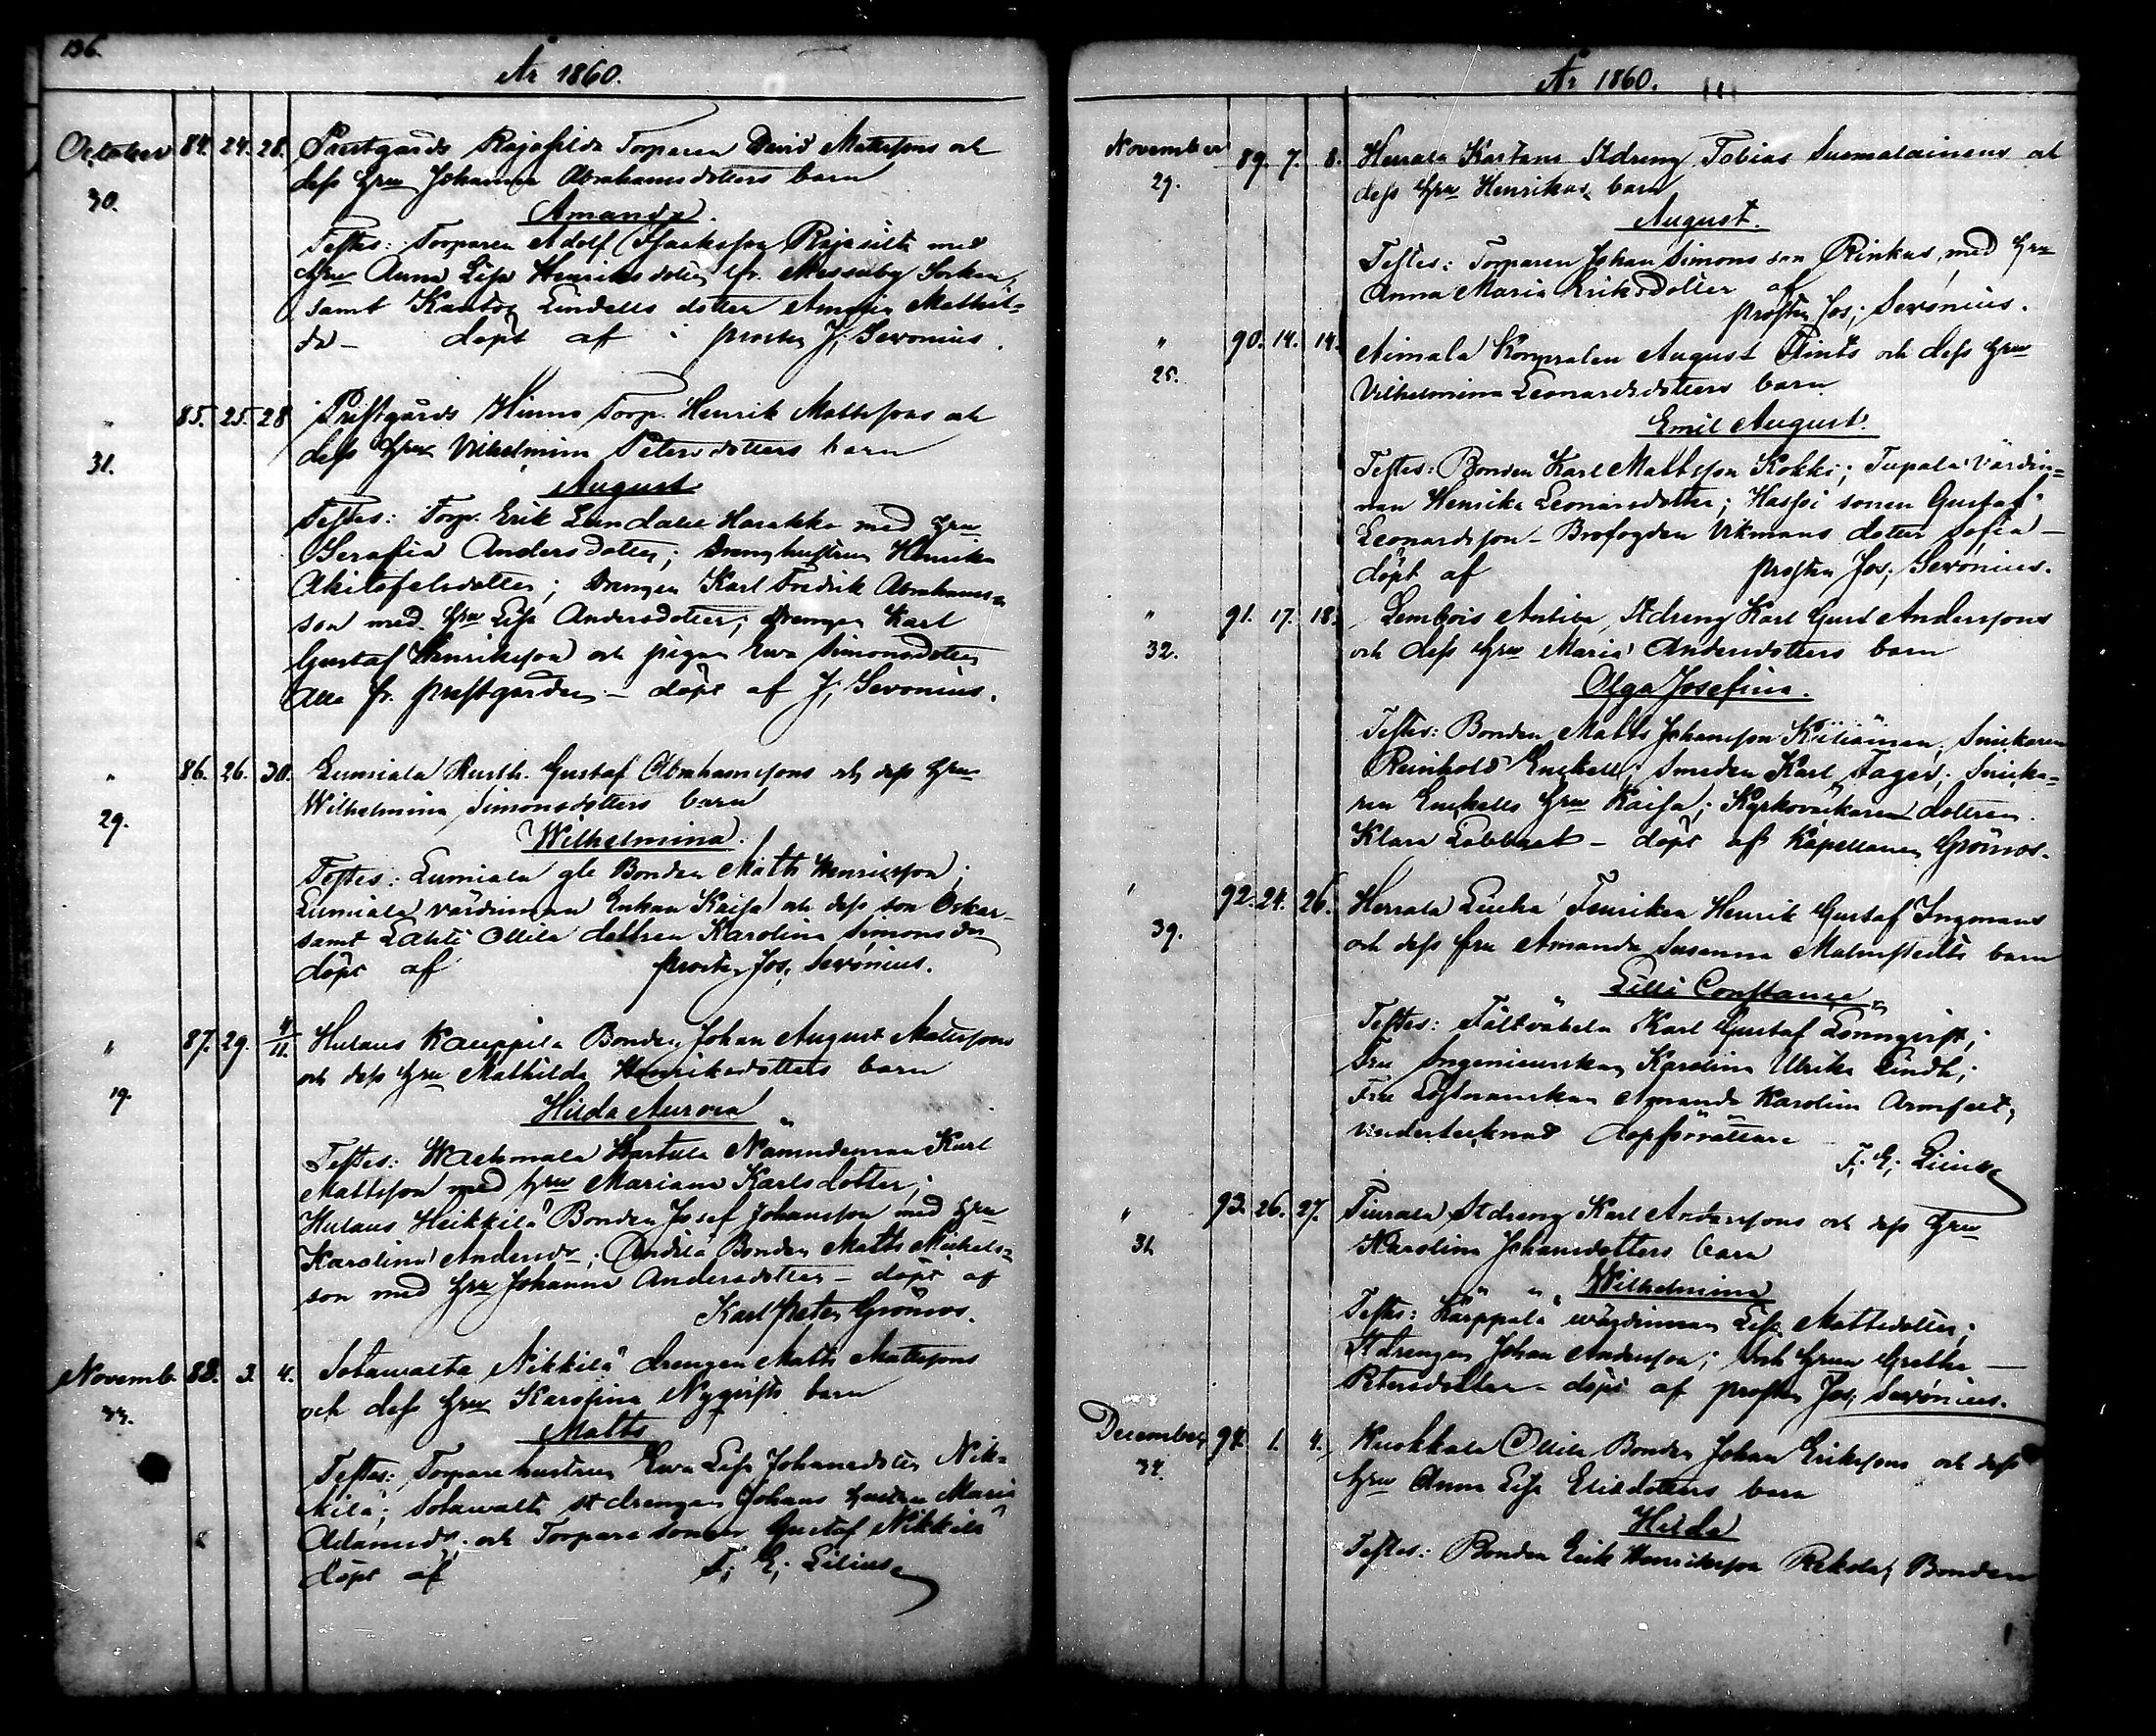 136.
År 1860.
October 84. 24. 28. Prestgårds Rajasilda Torparen David Mattssons och
30. dess hru Johanna Abrahamsdotters barn
Amanda.
Testes: Torparen Adolf Isaaksson Rajasilta med
hru Anna Lisa Henriksdotter fr. Messuby Socken,
samt Kantor Lindells dotter Amanda Mathil-
da - döpt af prosten J. Seronius.
" 85. 25. 28 Prestgårds Hinns Torp. Henrik Mattssons och
31. dess hru Vilhelmina Petersdotters barn
August
Testes: Torp. Erik Lundalil Harakka med hru
Serafia Andersdotter; Drenghustrun Henrika
Akitofelsdotter; Drengen Karl Fredrik Abrahams-
son med hru Lisa Andersdotter; drengen Karl
Gustaf Henriksson och pigan Eva Simonsdotter
alla fr. prestgården - döpt af J. Seronius.
" 86. 26. 30. Lumiala Rusth. Gustaf Abrahamssons och dess hru
29. Wilhelmina Simonsdotters barn
Wilhelmina.
Testes: Lumiala gle Bonden Matts Henricsson;
Lumiala värdinnan Enkan Kaisa och dess son Oskar
samt Lahti Ollila dottren Karolina Simonsdr
döpt af prosten Jos. Seronius.
" 87. 29. 4/11. Hulaus Kauppila Bonden Johan August Matssons
19. och dess hru Mathilda Henriksdotters barn
Hilda Aurora
Testes: Wachmala Hartula Nämndeman Karl
Mattsson med hru Mariana Karlsdotter;
Hulaus Heikkilä Bonden Josef Johansson med hru
Karolina Andersdr; Andila Bonden Matts Mickels-
son med hru Johanna Andersdotter - döpt af
Karl Peter Grönroos.
Novemb. 88. 3. 4. Sotawalta Nikkilä drengen Matts Mattssons
33. och dess hru Karolina Nyqvists barn
Matts
Testes: Torpare hustrun Eva Lisa Johansdotter Nik-
kilä; Sotawalta st drengen Johans hustru Maria
Adamsdr; och Torpare sonen Gustaf Nikkilä
döpt af F. E. Lilius
År 1860.
November 89. 7. 8. Herrala Kartans Stdreng Tobias Suomalainens och
29. dess hru Henrikas barn
August.
Testes: Torparen Johan Simonsson Rinkus, med hru
Anna Maria Eriksdotter af
prosten Jos. Seronius.
" 90. 14. 14. Aimala Korpralen August Flints och dess hru
25. Vilhelmina Leonardsdotters barn
Emil August.
Testes: Bonden Karl Mattsson Kokki; Tupala värdin-
nan Henrika Leonardsdotter; Hassi sonen Gustaf
Leonardsson - Brofogden Vikmans dotter Sofia -
döpt af prosten Jos. Seronius.
" 91. 17. 18. Lembois Antila Stdreng Karl Gust Anderssons
32. och dess hru Maria Andersdotters barn
Olga Josefina.
Testes: Bonden Matts Johansson Kiliäinen; Snickaren
Reinhold Enckell; Smeden Karl Fager; Snicka-
ren Enckells hru Kaisa; Kyrkoväktaren dottren
Klara Labbart - döpt af Kapellanen Grönroos.
" 92. 24. 26. Herrala Fenriken Henrik Gustaf Ingmans
39. och dess fru Amanda Susanna Malmstedts barn
Lilli Constance
Testes: Fältväbeln Karl Gustaf Lönnqvist;
Fru Ingenieurskan Karolina Ulrika Lindh;
Fru Löjtnanskan Amanda Karolina Armfelt,
undertecknad döpförrättare
F. E. Lilius
" 93. 26. 27. Tiurala Stdreng Karl Anderssons och dess hru
31. Karolina Johansdotters barn
Wilhelmina
Testes: Kärppälä wärdinnan Lisa Mattsdotter;
Stdrengen Johan Andersson; och hrun Gretha
Petersdotter - döpt af prosten Jos. Seronius.
December 94. 1. 4. Kuokkala Ollila Bonden Johan Erikssons och dess
34. hru Anna Lisa Elisdotters barn
Hilda
Testes: Bonden Erik Henriksson Rekola; Bonden